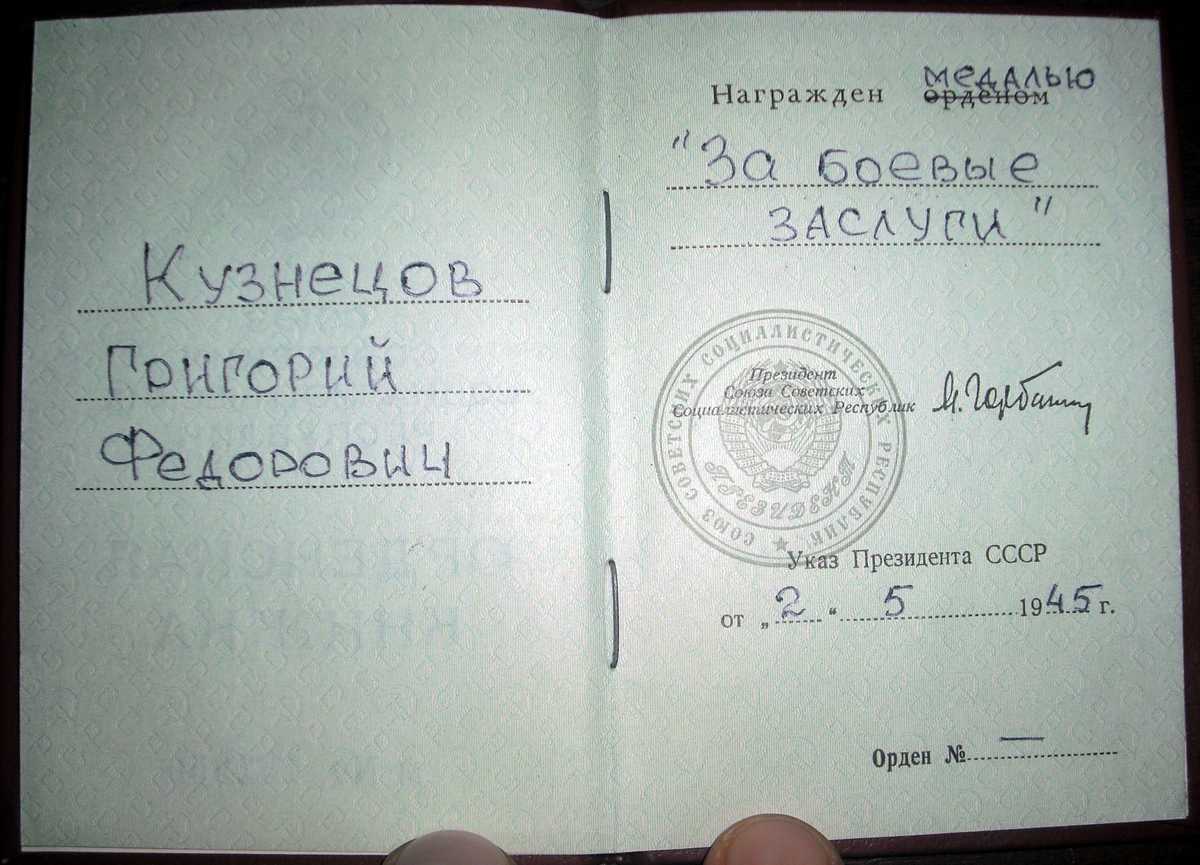 Кузнецов
Григорий
Федорович
медалью
Награжден орденом
"За боевые
заслуги"
СОЮЗ СОВЕТСКИХ СОЦИАЛИСТИЧЕСКИХ РЕСПУБЛИК
Президент
Союза Советских
Социалистических Республик М. Горбачев
ПРЕЗИДЕНТ
Указ Президента СССР
от „2“ 5 1945 г.
Орден № —